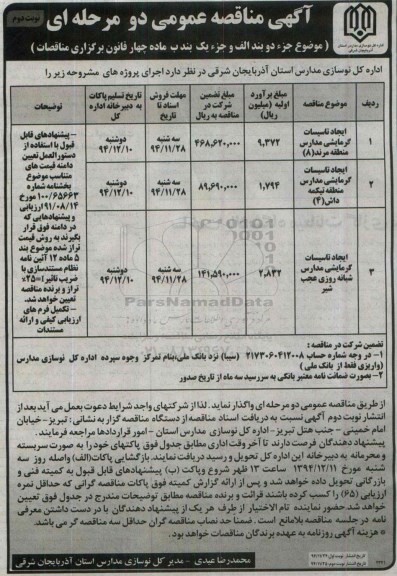 نوبت دوم
آگهی مناقصه عمومی دو مرحله ای
( موضوع جزء دو بند الف و جزء یک بند ب ماده چهار قانون برگزاری مناقصات )
اداره کل نوسازی مدارس استان آذربایجان شرقی در نظر دارد اجرای پروژه های مشروحه زیر را
ردیف
موضوع مناقصه
مبلغ برآورد اولیه (میلیون ریال)
مبلغ تضمین شرکت در مناقصه به ریال
مهلت فروش اسناد تا تاریخ
تاریخ تسلیم پاکات به دبیرخانه اداره کل
توضیحات
۱
ایجاد تاسیسات
گرمایشی مدارس
منطقه مرند(۸)
۹,۳۷۲
۴۶۸,۶۲۰,۰۰۰
سه شنبه
۹۴/۱۱/۲۸
دوشنبه
۹۴/۱۲/۱۰
۲
ایجاد تاسیسات
گرمایشی مدارس
منطقه تیکمه
داش(۴)
۱,۷۹۴
۸۹,۶۹۰,۰۰۰
سه شنبه
۹۴/۱۱/۲۸
دوشنبه
۹۴/۱۲/۱۰
۳
ایجاد تاسیسات
گرمایشی مدارس
شبانه روزی عجب
شیر
۲,۸۳۲
۱۴۱,۵۹۰,۰۰۰
سه شنبه
۹۴/۱۱/۲۸
دوشنبه
۹۴/۱۲/۱۰
– پیشنهادهای قابل
قبول با استفاده از
دستورالعمل تعیین
دامنه قیمت های
متناسب موضوع
بخشنامه شماره
۱۰۰/۶۵۶۶۳ مورخ
۹۱/۰۸/۱۴ ارزیابی
و پیشنهادهایی که
در دامنه فوق قرار
بگیرند به روش قیمت
تراز شده موضوع بند
۵ ماده ۱۲ آئین نامه
نظام مستندسازی با
ضریب تاثیر ۲۵%=i
تراز و برنده مناقصه
تعیین خواهد شد.
– تکمیل فرم های
ارزیابی کیفی و ارائه
مستندات
ParsNamadData
تضمین شرکت در مناقصه :
۱– در وجه شماره حساب ۲۱۷۳۰۶۰۴۱۲۰۰۸ (سیبا) نزد بانک ملی،بنام تمرکز وجوه سپرده اداره کل نوسازی مدارس
(واریزی فقط از بانک ملی )
۲– بصورت ضمانت نامه معتبر بانکی به سررسید سه ماه از تاریخ صدور
از طریق مناقصه عمومی دو مرحله ای واگذار نماید. لذا از شرکتهای واجد شرایط دعوت بعمل می آید بعد از
انتشار نوبت دوم آگهی نسبت به دریافت اسناد مناقصه از دستگاه مناقصه گزار به نشانی : تبریز – خیابان
امام خمینی – جنب هتل تبریز – اداره کل نوسازی مدارس استان – امور قراردادها مراجعه فرمایند.
پیشنهاد دهندگان فرصت دارند تا آخر وقت اداری مطابق جدول فوق پاکتهای خود را به صورت سربسته
و محرمانه به دبیرخانه این اداره کل تحویل و رسید دریافت نمایند. بازگشایی پاکات(الف) واصله روز سه
شنبه مورخ ۱۳۹۴/۱۲/۱۱ ساعت ۱۳ ظهر شروع وپاکت (ب) پیشنهادهای قابل قبول به کمیته فنی و
بازرگانی تحویل داده خواهد شد و پس از ارائه گزارش کمیته فوق پاکات مناقصه گرانی که حداقل نمره
ارزیابی (۶۵) را کسب کرده باشند قرائت و برنده مناقصه مطابق توضیحات مندرج در جدول فوق تعیین
خواهد شد.حضور نماینده تام الاختیار از طرف هر یک از پیشنهاد دهندگان با در دست داشتن معرفی
نامه در جلسه مناقصه بلامانع است. ضمنا حد نصاب مناقصه گران حداقل سه مناقصه گر می باشد.
هزینه آگهی روزنامه به عهده برندگان مناقصات خواهد بود.
محمدرضا عیدی – مدیر کل نوسازی مدارس استان آذربایجان شرقی